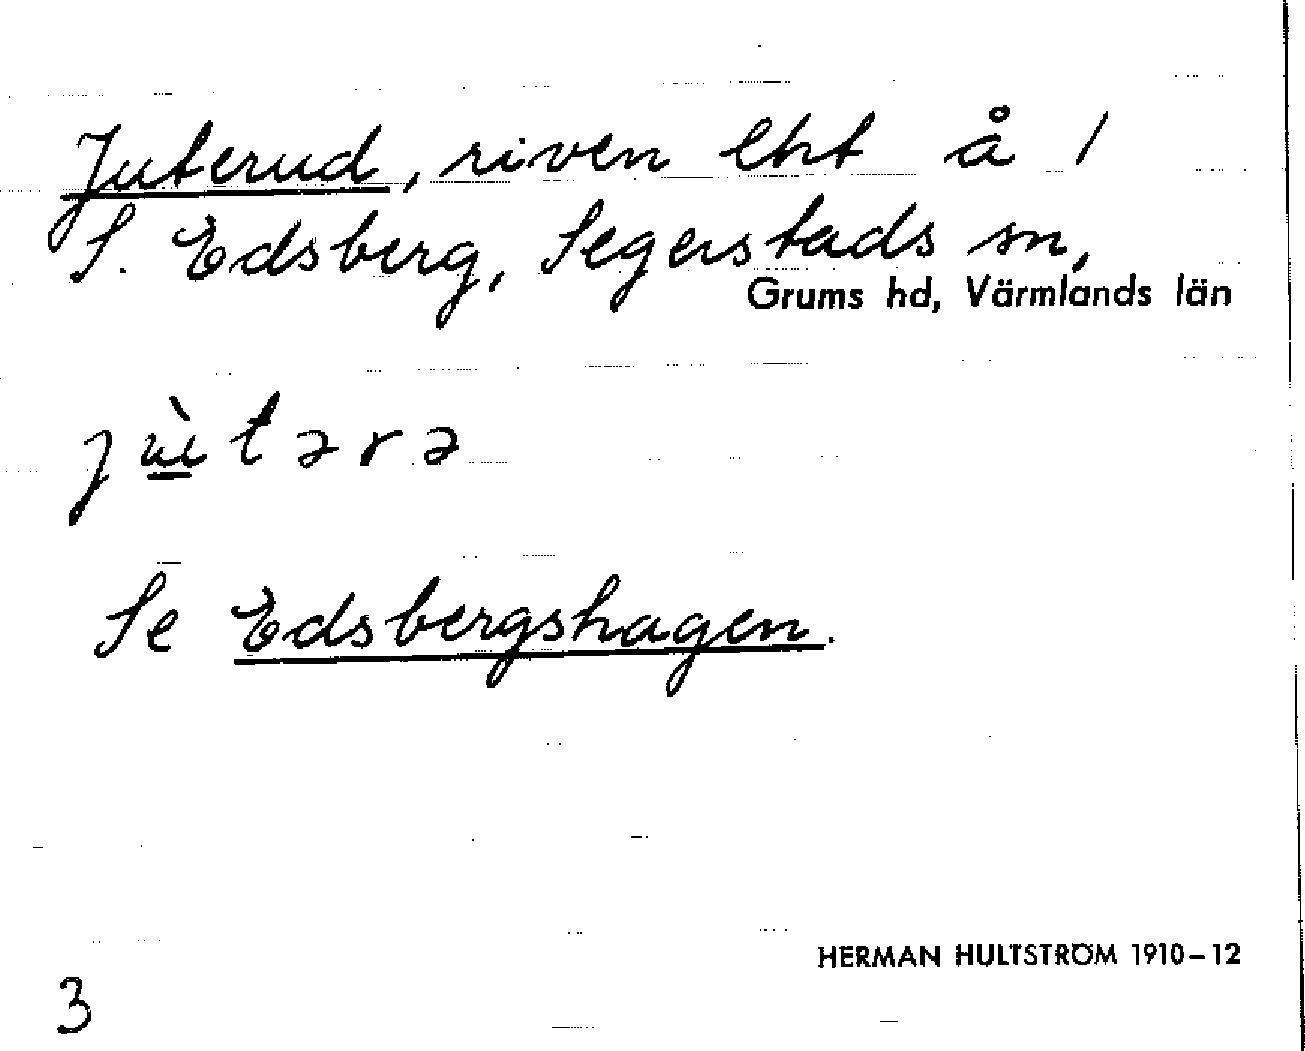 Juterud, riven lht å 1
S. Edsberg, Segerstads sn,
Grums hd, Värmlands län
jùtərə
Se Edsbergshagen.
HERMAN HULTSTRÖM 1910–12
3